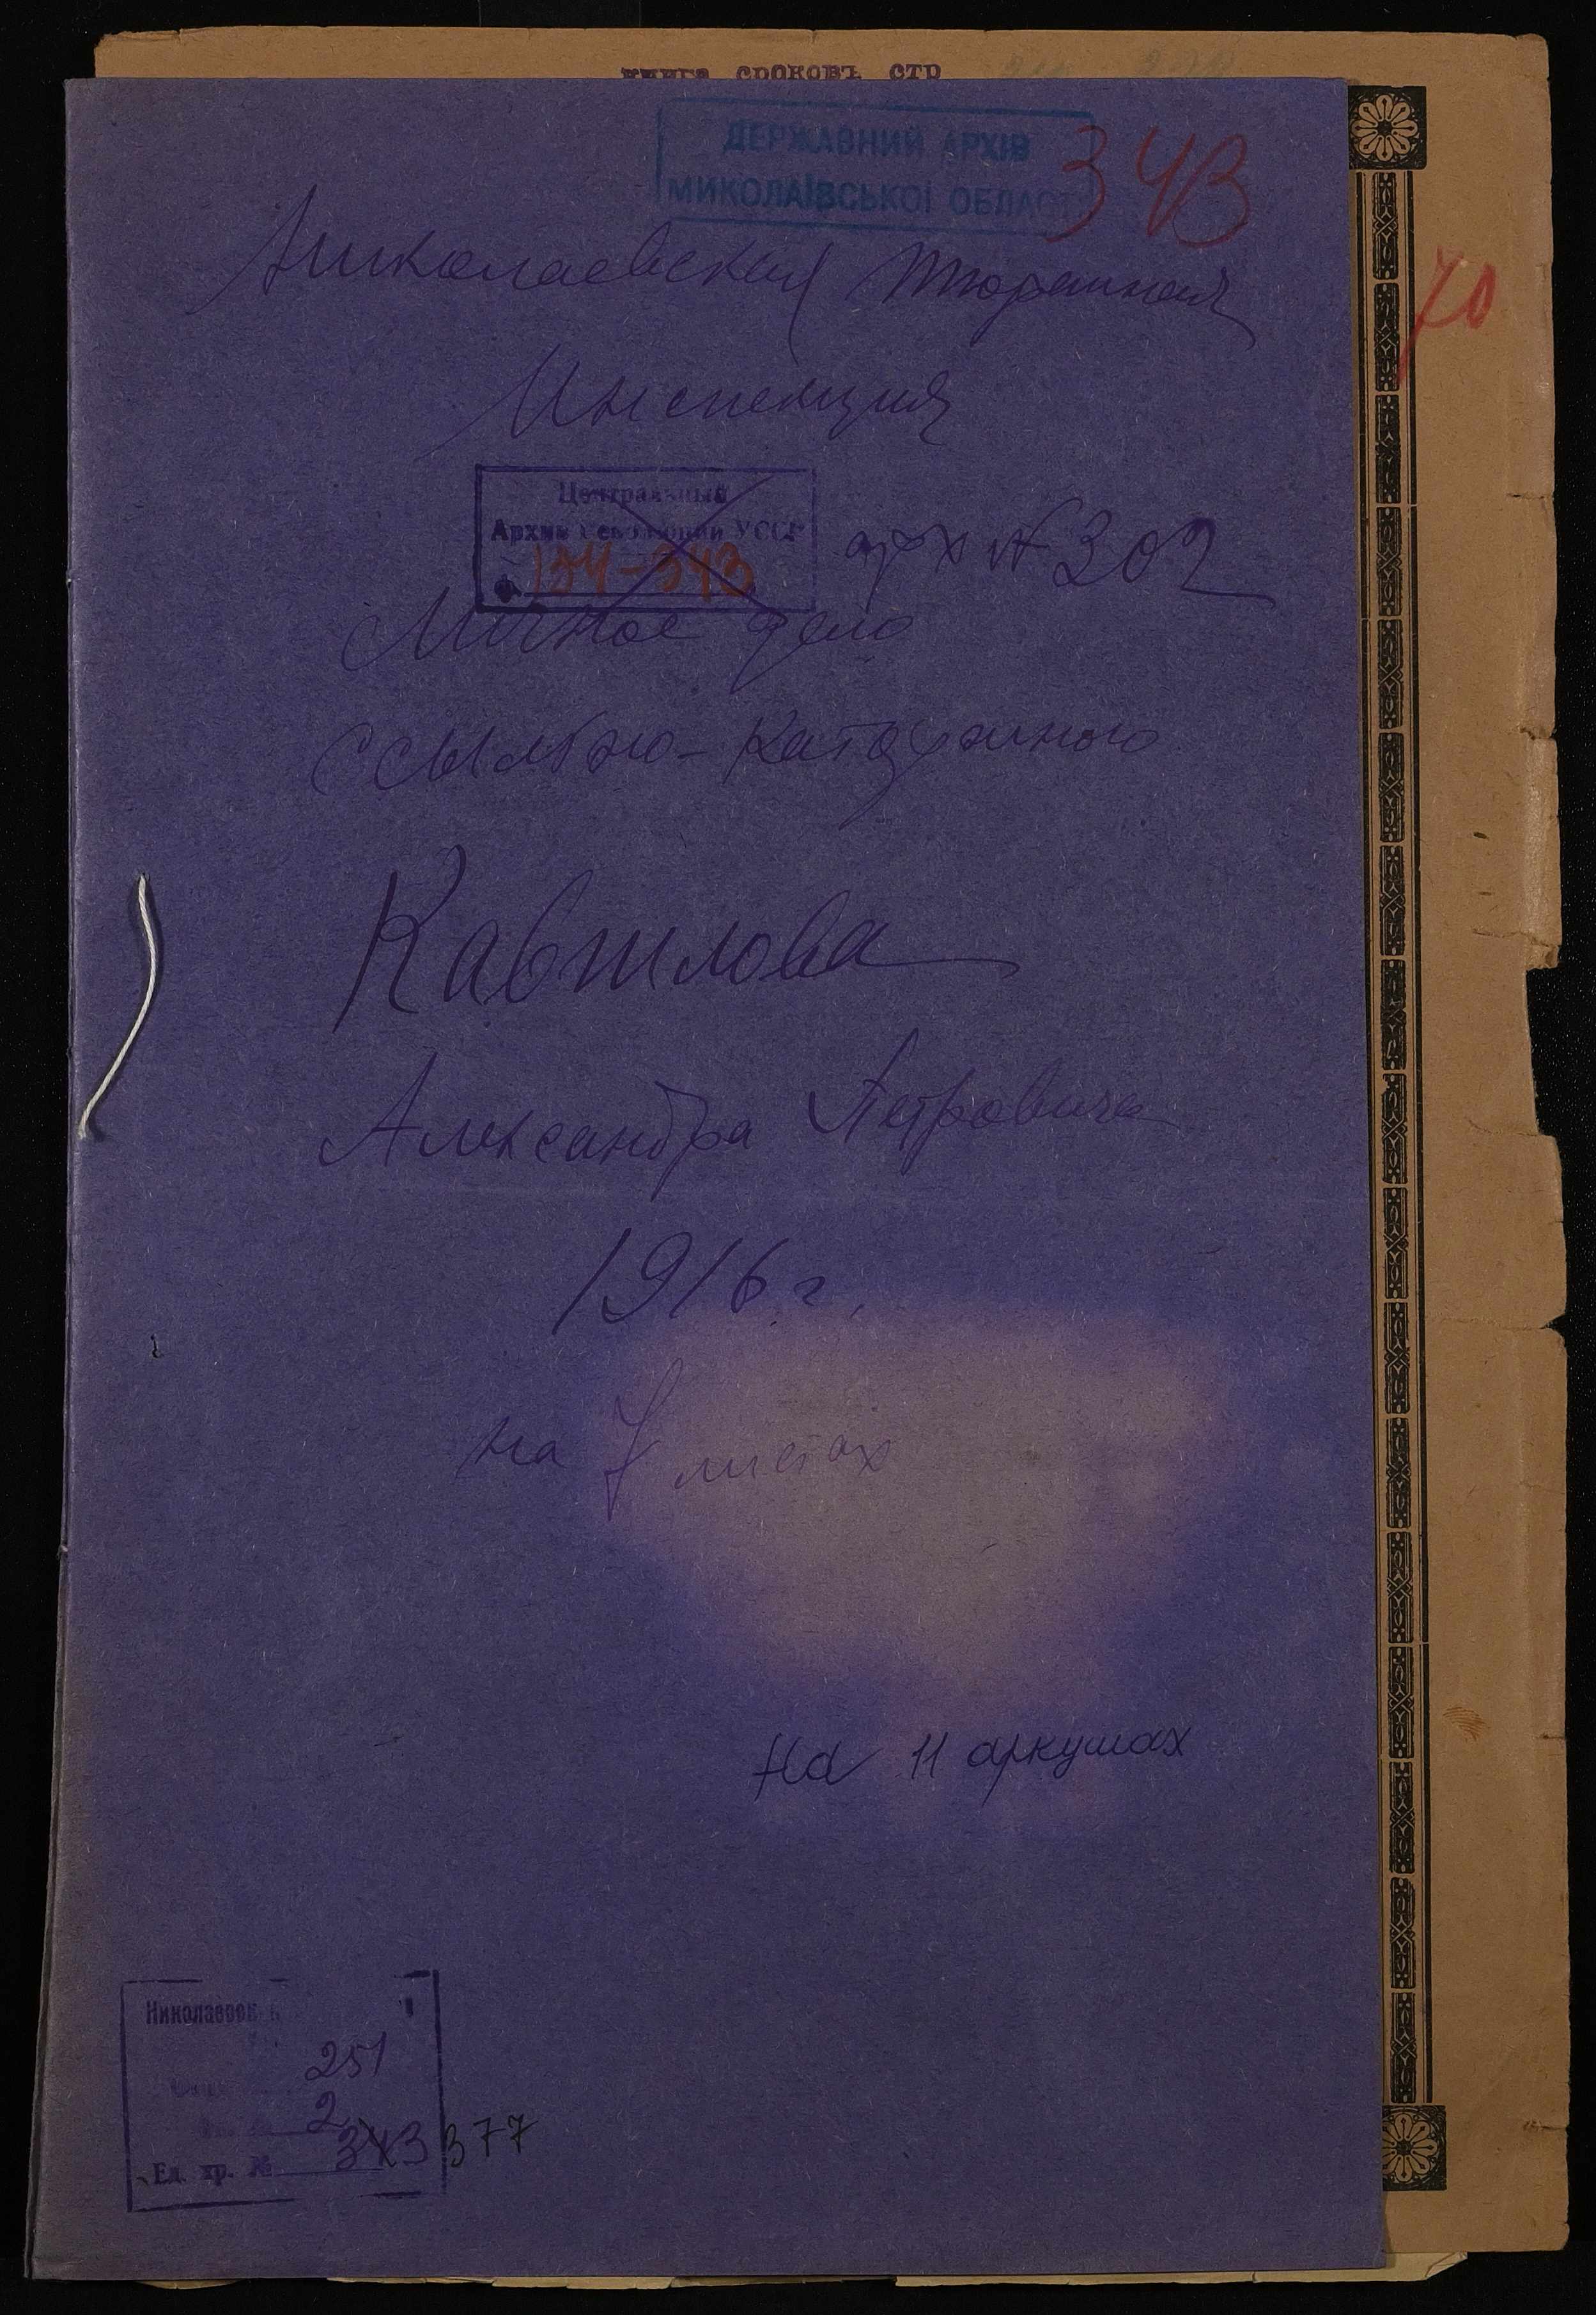 книга сроковъ стр
ДЕРЖАВНИЙ АРХІВ
МИКОЛАЇВСЬКОЇ ОБЛАСТІ
343
70
Николаевская Тюремная
Инспекция
Центральный
Архив Революции УССР
Ф. 134-343
арх № 302
Личное дело
ссыльно-каторжного
Кавтилова
Александра Петровича
1916 г.
на 7 листах
На 11 аркушах
251
2
Ед. хр. № 343 377